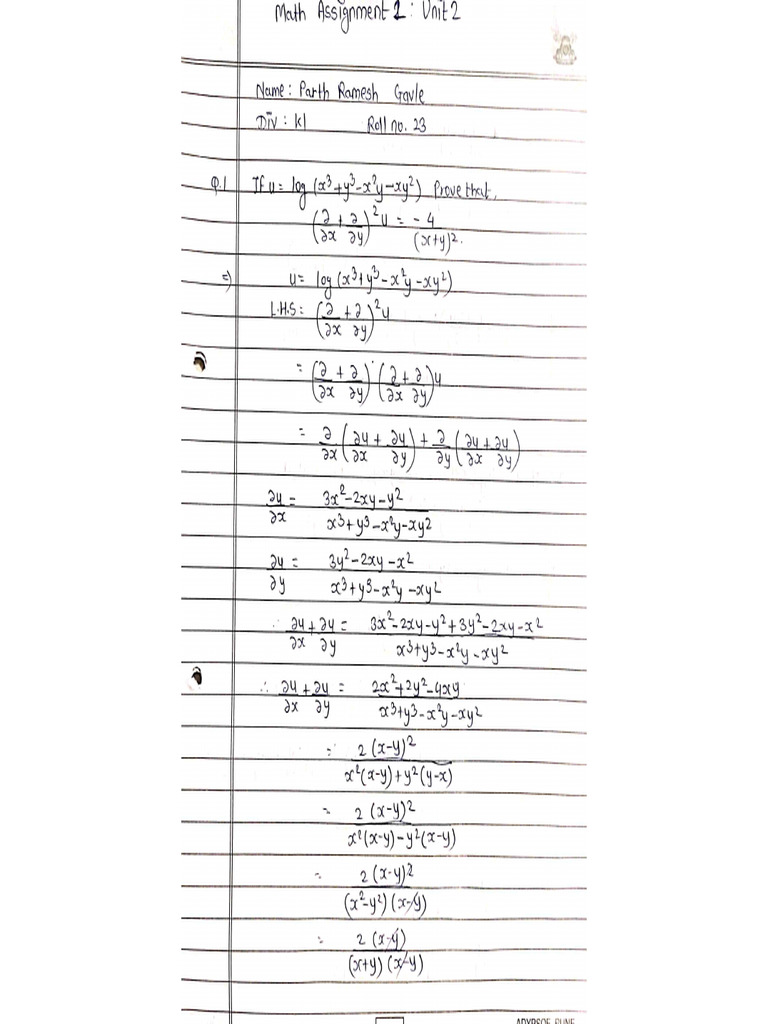 Math Assignment 1 : Unit 2
Name : Parth Ramesh Gavle
Div : K1 Roll no. 23
Q.1 If u = log (x³+y³-x²y-xy²) Prove that,
(∂/∂x + ∂/∂y)² u = -4/(x+y)².
=) u = log (x³+y³-x²y-xy²)
L.H.S : (∂/∂x + ∂/∂y)² u
= (∂/∂x + ∂/∂y) · (∂/∂x + ∂/∂y) u
= ∂/∂x (∂u/∂x + ∂u/∂y) + ∂/∂y (∂u/∂x + ∂u/∂y)
∂u/∂x = (3x²-2xy-y²)/(x³+y³-x²y-xy²)
∂u/∂y = (3y²-2xy-x²)/(x³+y³-x²y-xy²)
∴ ∂u/∂x + ∂u/∂y = (3x²-2xy-y²+3y²-2xy-x²)/(x³+y³-x²y-xy²)
∴ ∂u/∂x + ∂u/∂y = (2x²+2y²-4xy)/(x³+y³-x²y-xy²)
= 2(x-y)²/(x²(x-y)+y²(y-x))
= 2(x-y)²/(x²(x-y)-y²(x-y))
= 2(x-y)²/((x²-y²)(x-y))
= 2(x-y)/((x+y)(x-y))
ADYPSOE, PUNE